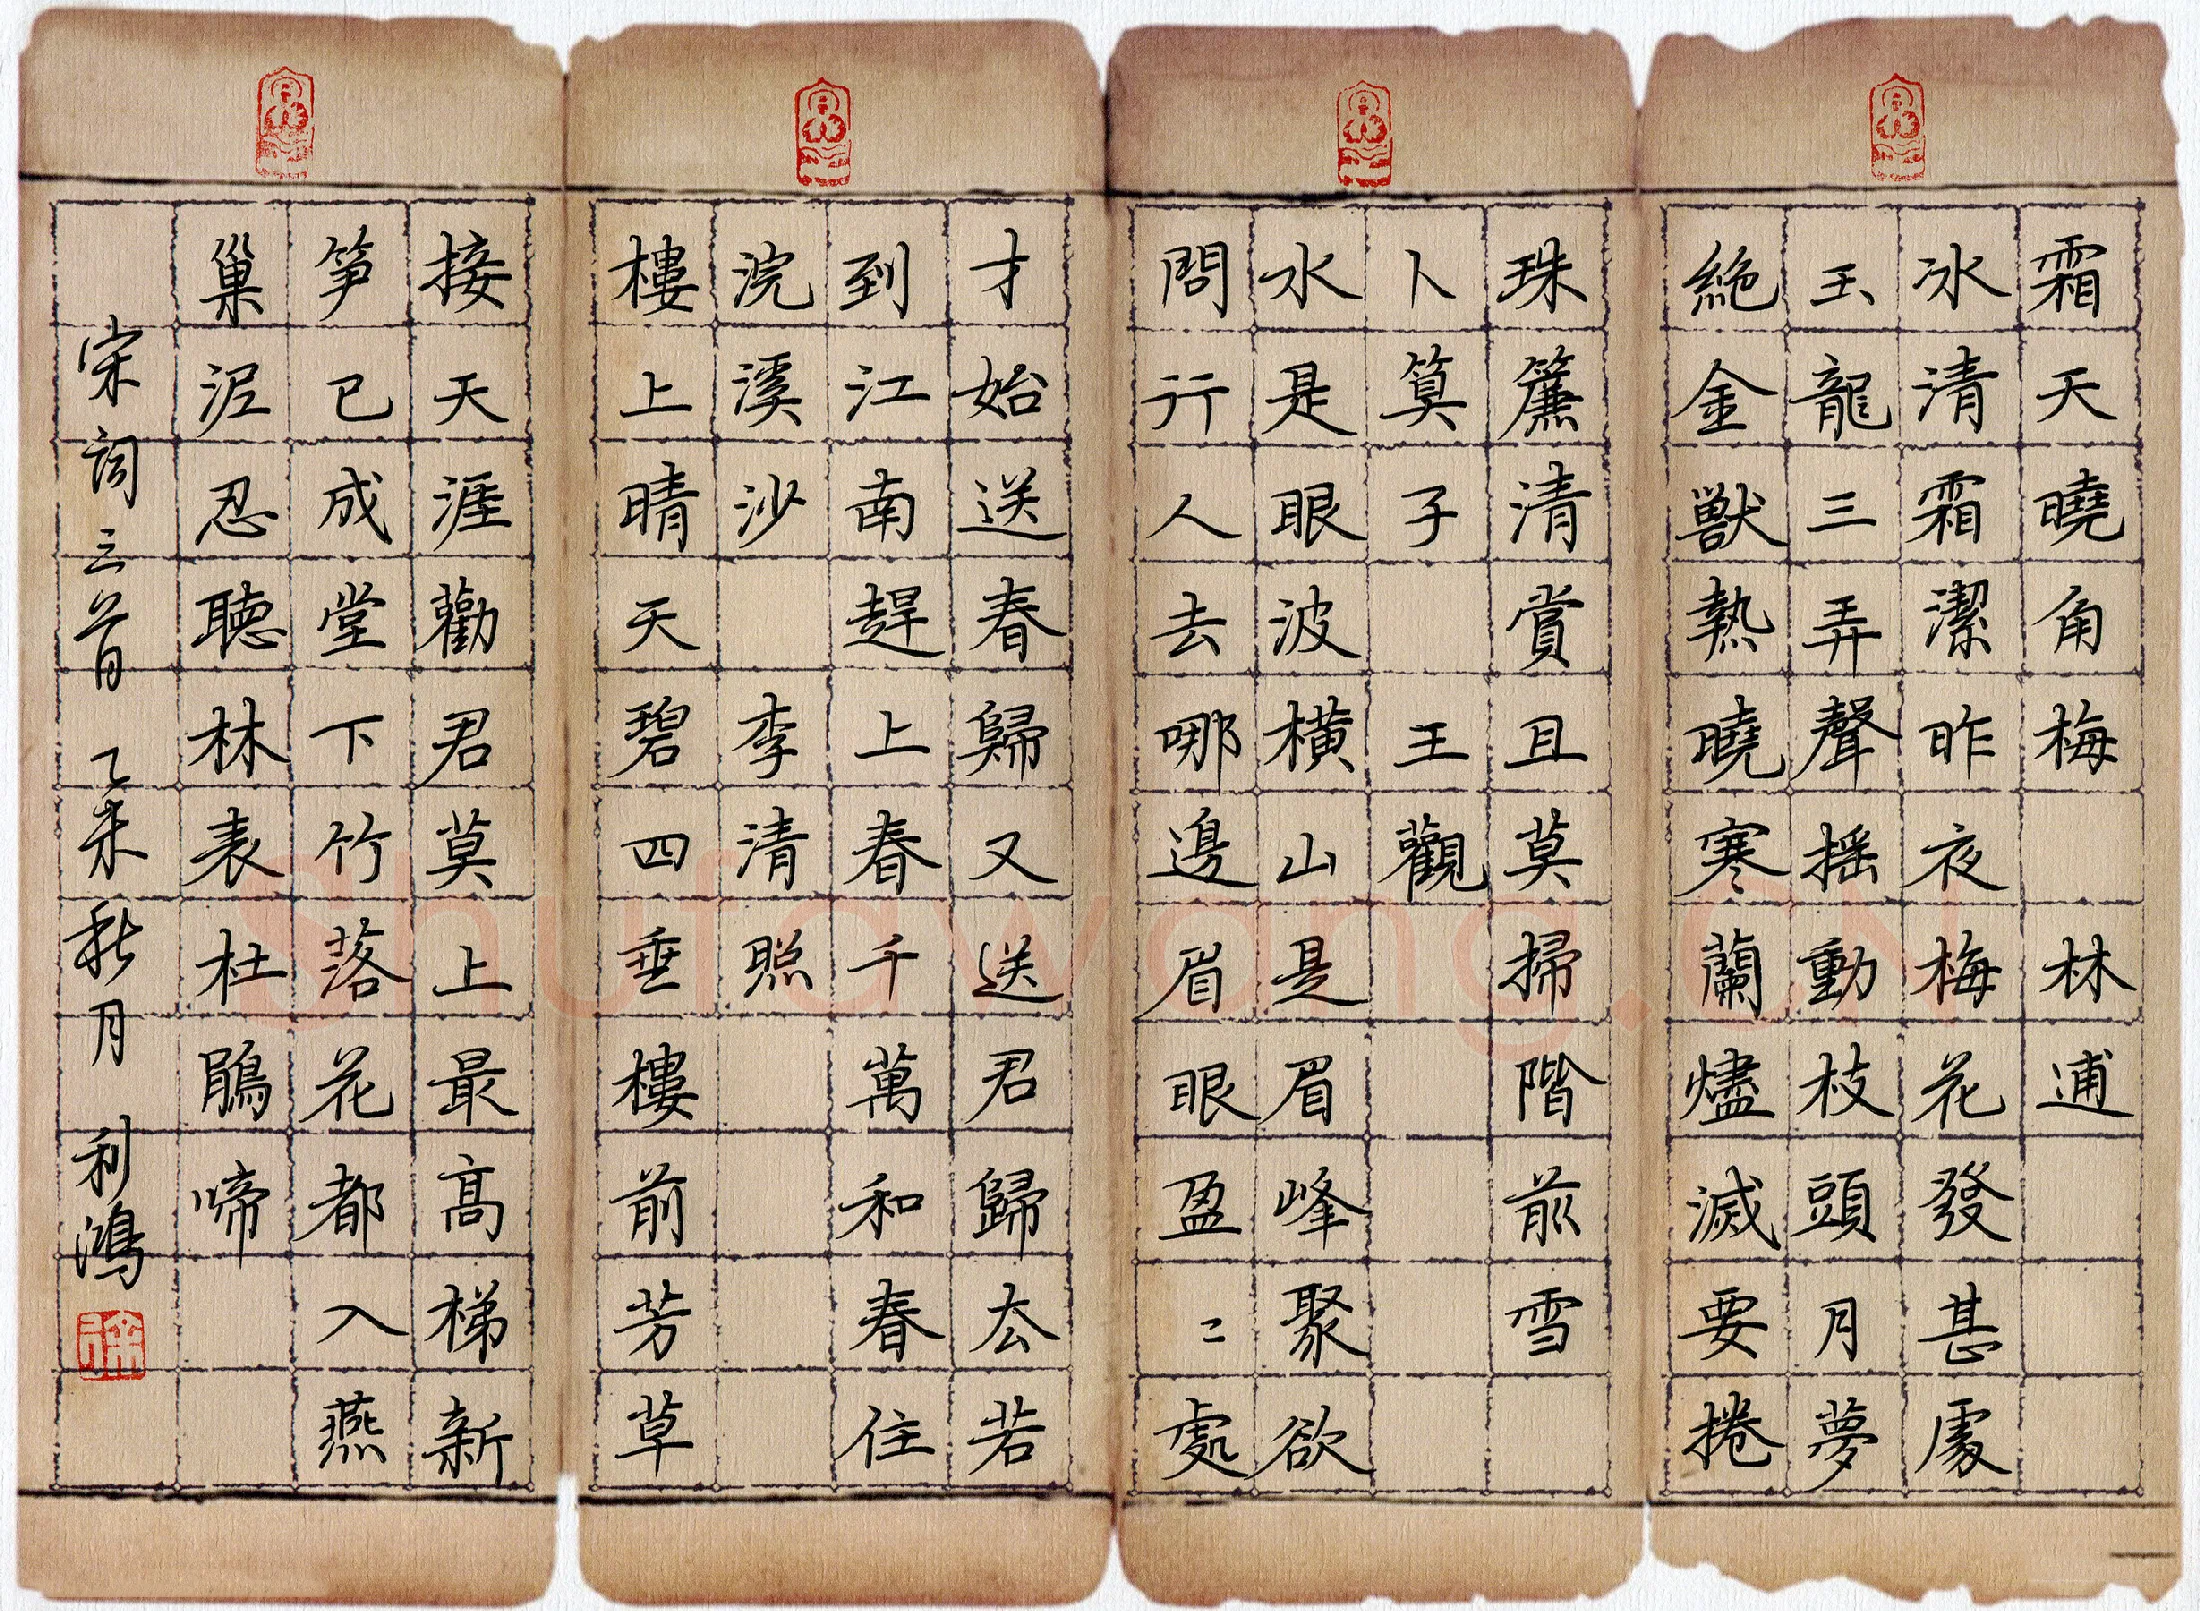 霜天曉角梅 林逋
冰清霜潔昨夜梅花發甚處
玉龍三弄聲摇動枝頭月夢
絶金獸熱曉寒蘭燼滅要捲
珠簾清賞且莫掃階前雪
卜算子 王觀
水是眼波橫山是眉峰聚欲
問行人去哪邊眉眼盈〻處
才始送春歸又送君歸去若
到江南趕上春千萬和春住
浣溪沙 李清照
樓上晴天碧四垂樓前芳草
接天涯勸君莫上最高梯新
笋已成堂下竹落花都入燕
巢泥忍聽林表杜鵑啼
宋詞三首 乙未秋月 利鴻
Shufawang.CN